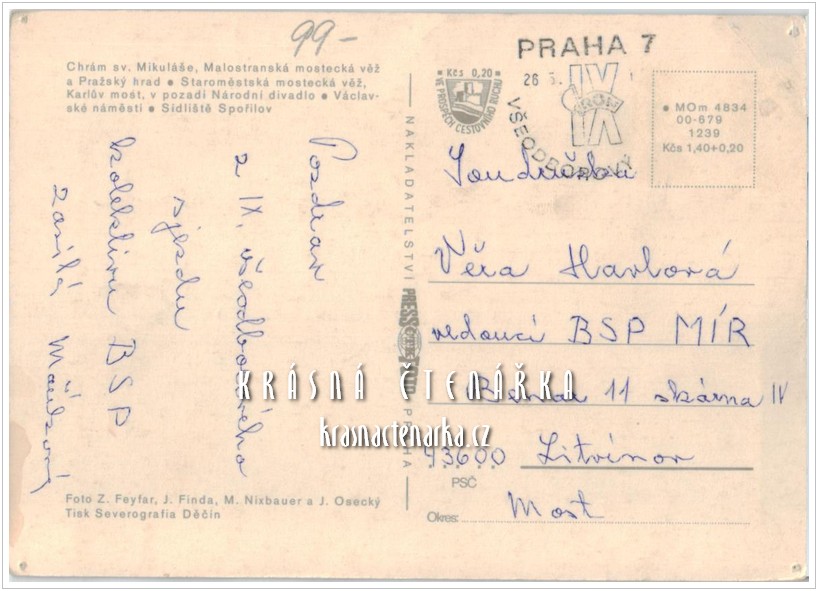 99-
Chrám sv. Mikuláše, Malostranská mostecká věž
a Pražský hrad • Staroměstská mostecká věž,
Karlův most, v pozadí Národní divadlo • Václav-
ské náměstí • Sídliště Spořilov
Pozdrav
z IX. všeodborového
sjezdu
kolektivu BSP
zasílá
Foto Z. Feyfar, J. Finda, M. Nixbauer a J. Osecký
Tisk Severografia Děčín
NAKLADATELSTVÍ PRESSFOTO PRAHA
• Kčs 0,20 •
VE PROSPĚCH CESTOVNÍHO RUCHU
PRAHA 7
26
IX
ROH
VŠEODBOROVÝ
• MOm 4834
00-679
1239
Kčs 1,40+0,20
Soudružka
Věra Havlová
vedoucí BSP MÍR
11 skárna IV
43600 Litvínov
PSČ
Most
Okres:
KRÁSNÁ ČTENÁŘKA
krasnactenarka.cz